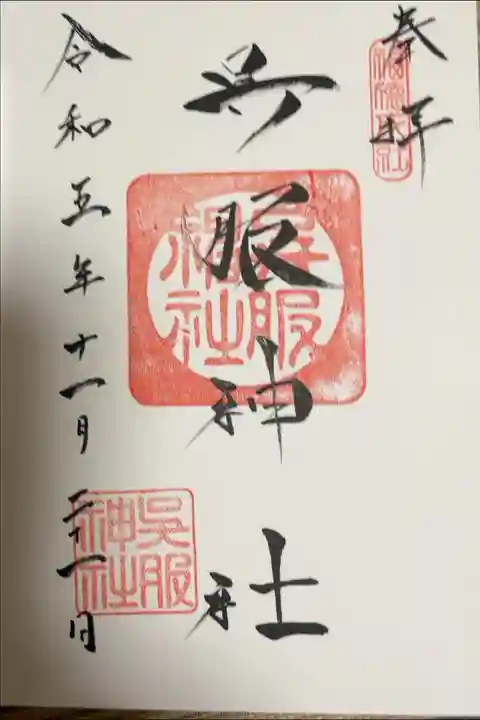 奉拝
福徳社
呉服神社
呉服
神社
令和五年十一月二十一日
呉服
神社